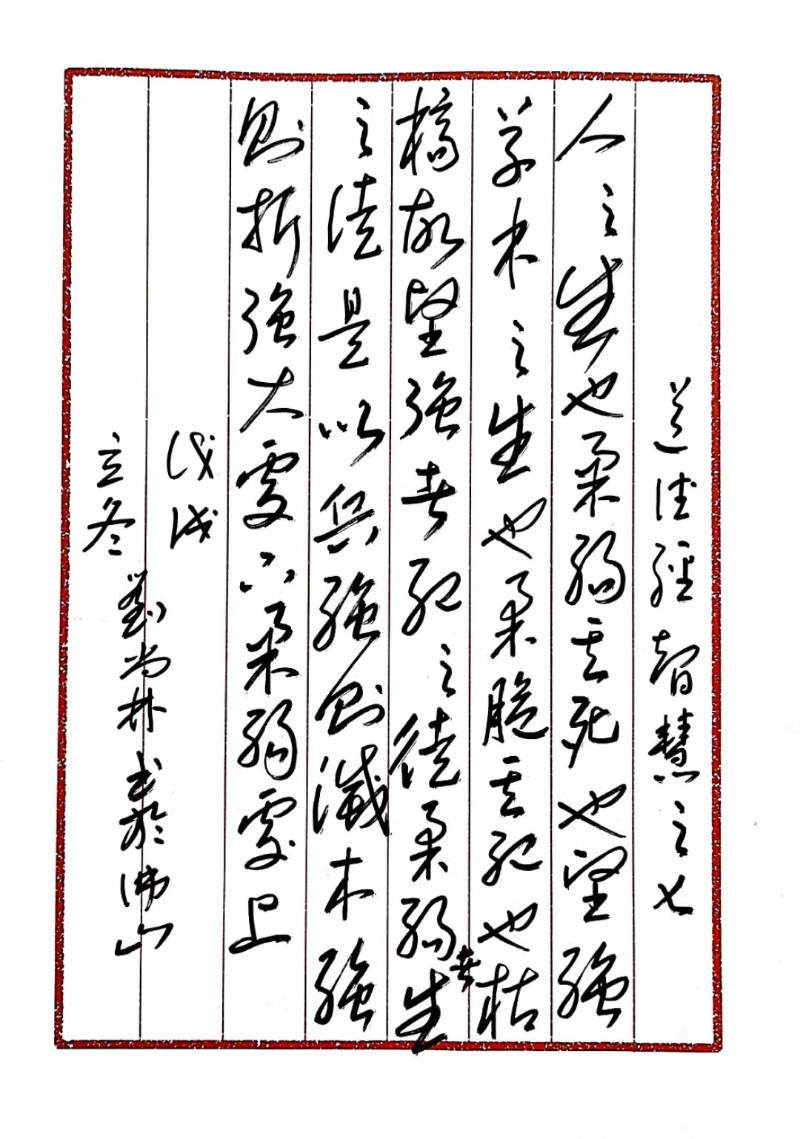 道德經智慧之七
人之生也柔弱其死也堅強
草木之生也柔脆其死也枯
槁故堅強者死之徒柔弱者生
之徒是以兵強則滅木強
則折強大處下柔弱處上
戊戌
立冬
劉尚林書於佛山